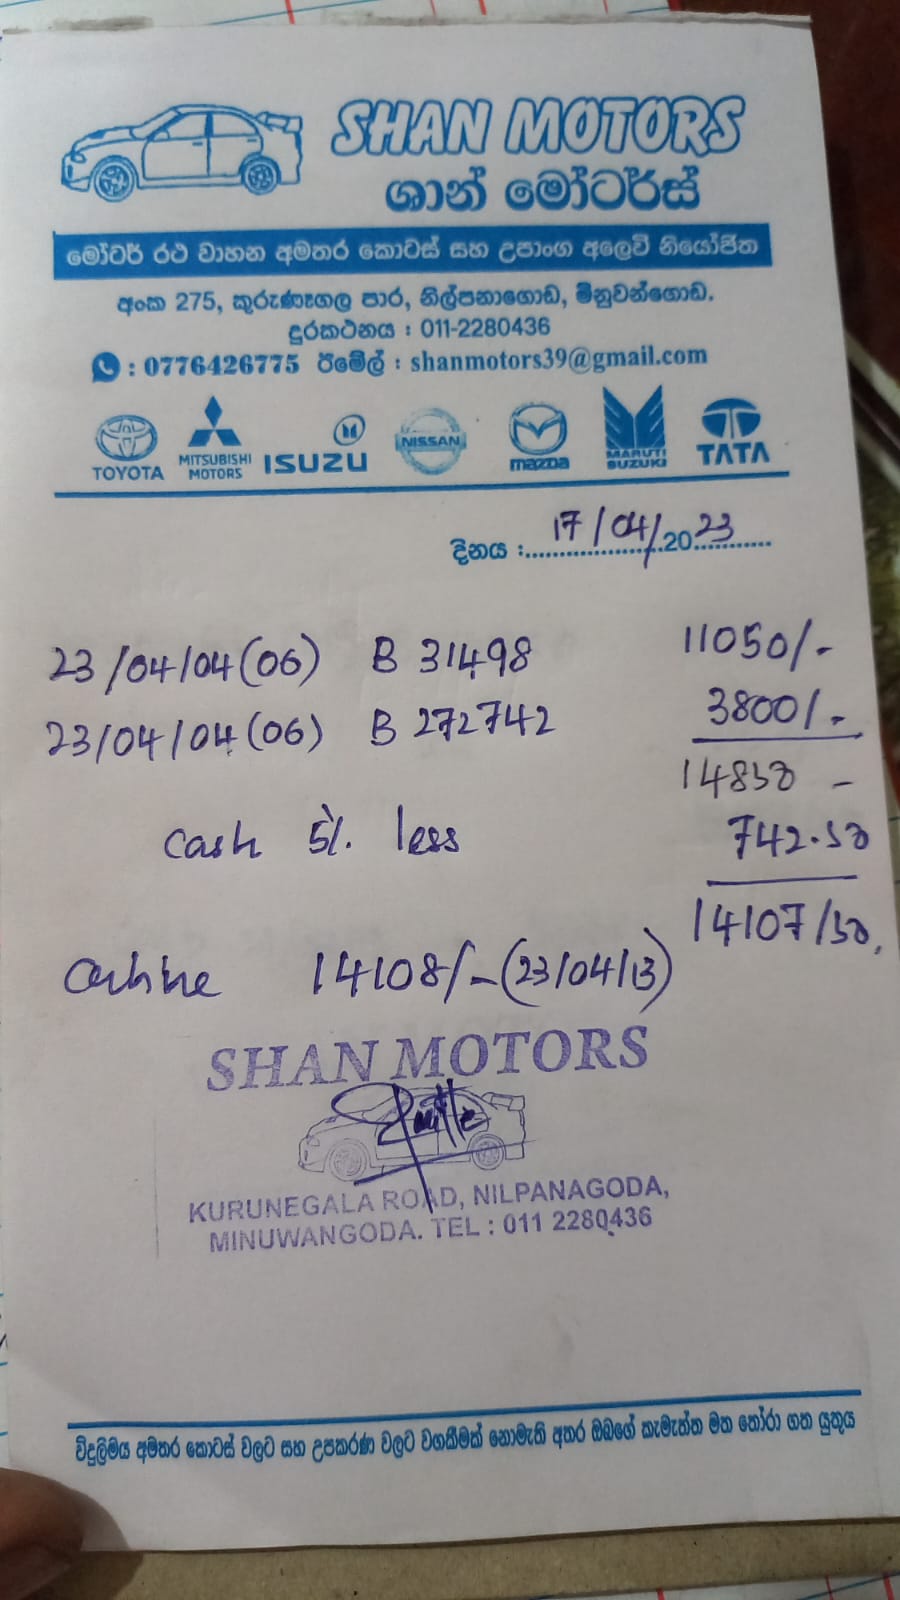 SHAN MOTORS
ශාන් මෝටර්ස්
මෝටර් රථ වාහන අමතර කොටස් සහ උපාංග අලෙවි නියෝජිත
අංක 275, කුරුණෑගල පාර, නිල්පනාගොඩ, මිනුවන්ගොඩ.
දුරකථනය : 011-2280436
: 0776426775 ඊමේල් : shanmotors39@gmail.com
TOYOTA MITSUBISHI MOTORS ISUZU NISSAN mazda MARUTI SUZUKI TATA
දිනය : 17/04/2023
23/04/04(06) B 31498 11050/-
23/04/04(06) B 272742 3800/-
14850 -
Cash 5%. less 742.50
14107/50.
14108/-(23/04/13)
SHAN MOTORS
KURUNEGALA ROAD, NILPANAGODA,
MINUWANGODA. TEL : 011 2280436
විදුලිමය අමතර කොටස් වලට සහ උපකරණ වලට වගකීමක් නොමැති අතර ඔබගේ කැමැත්ත මත තෝරා ගත යුතුය